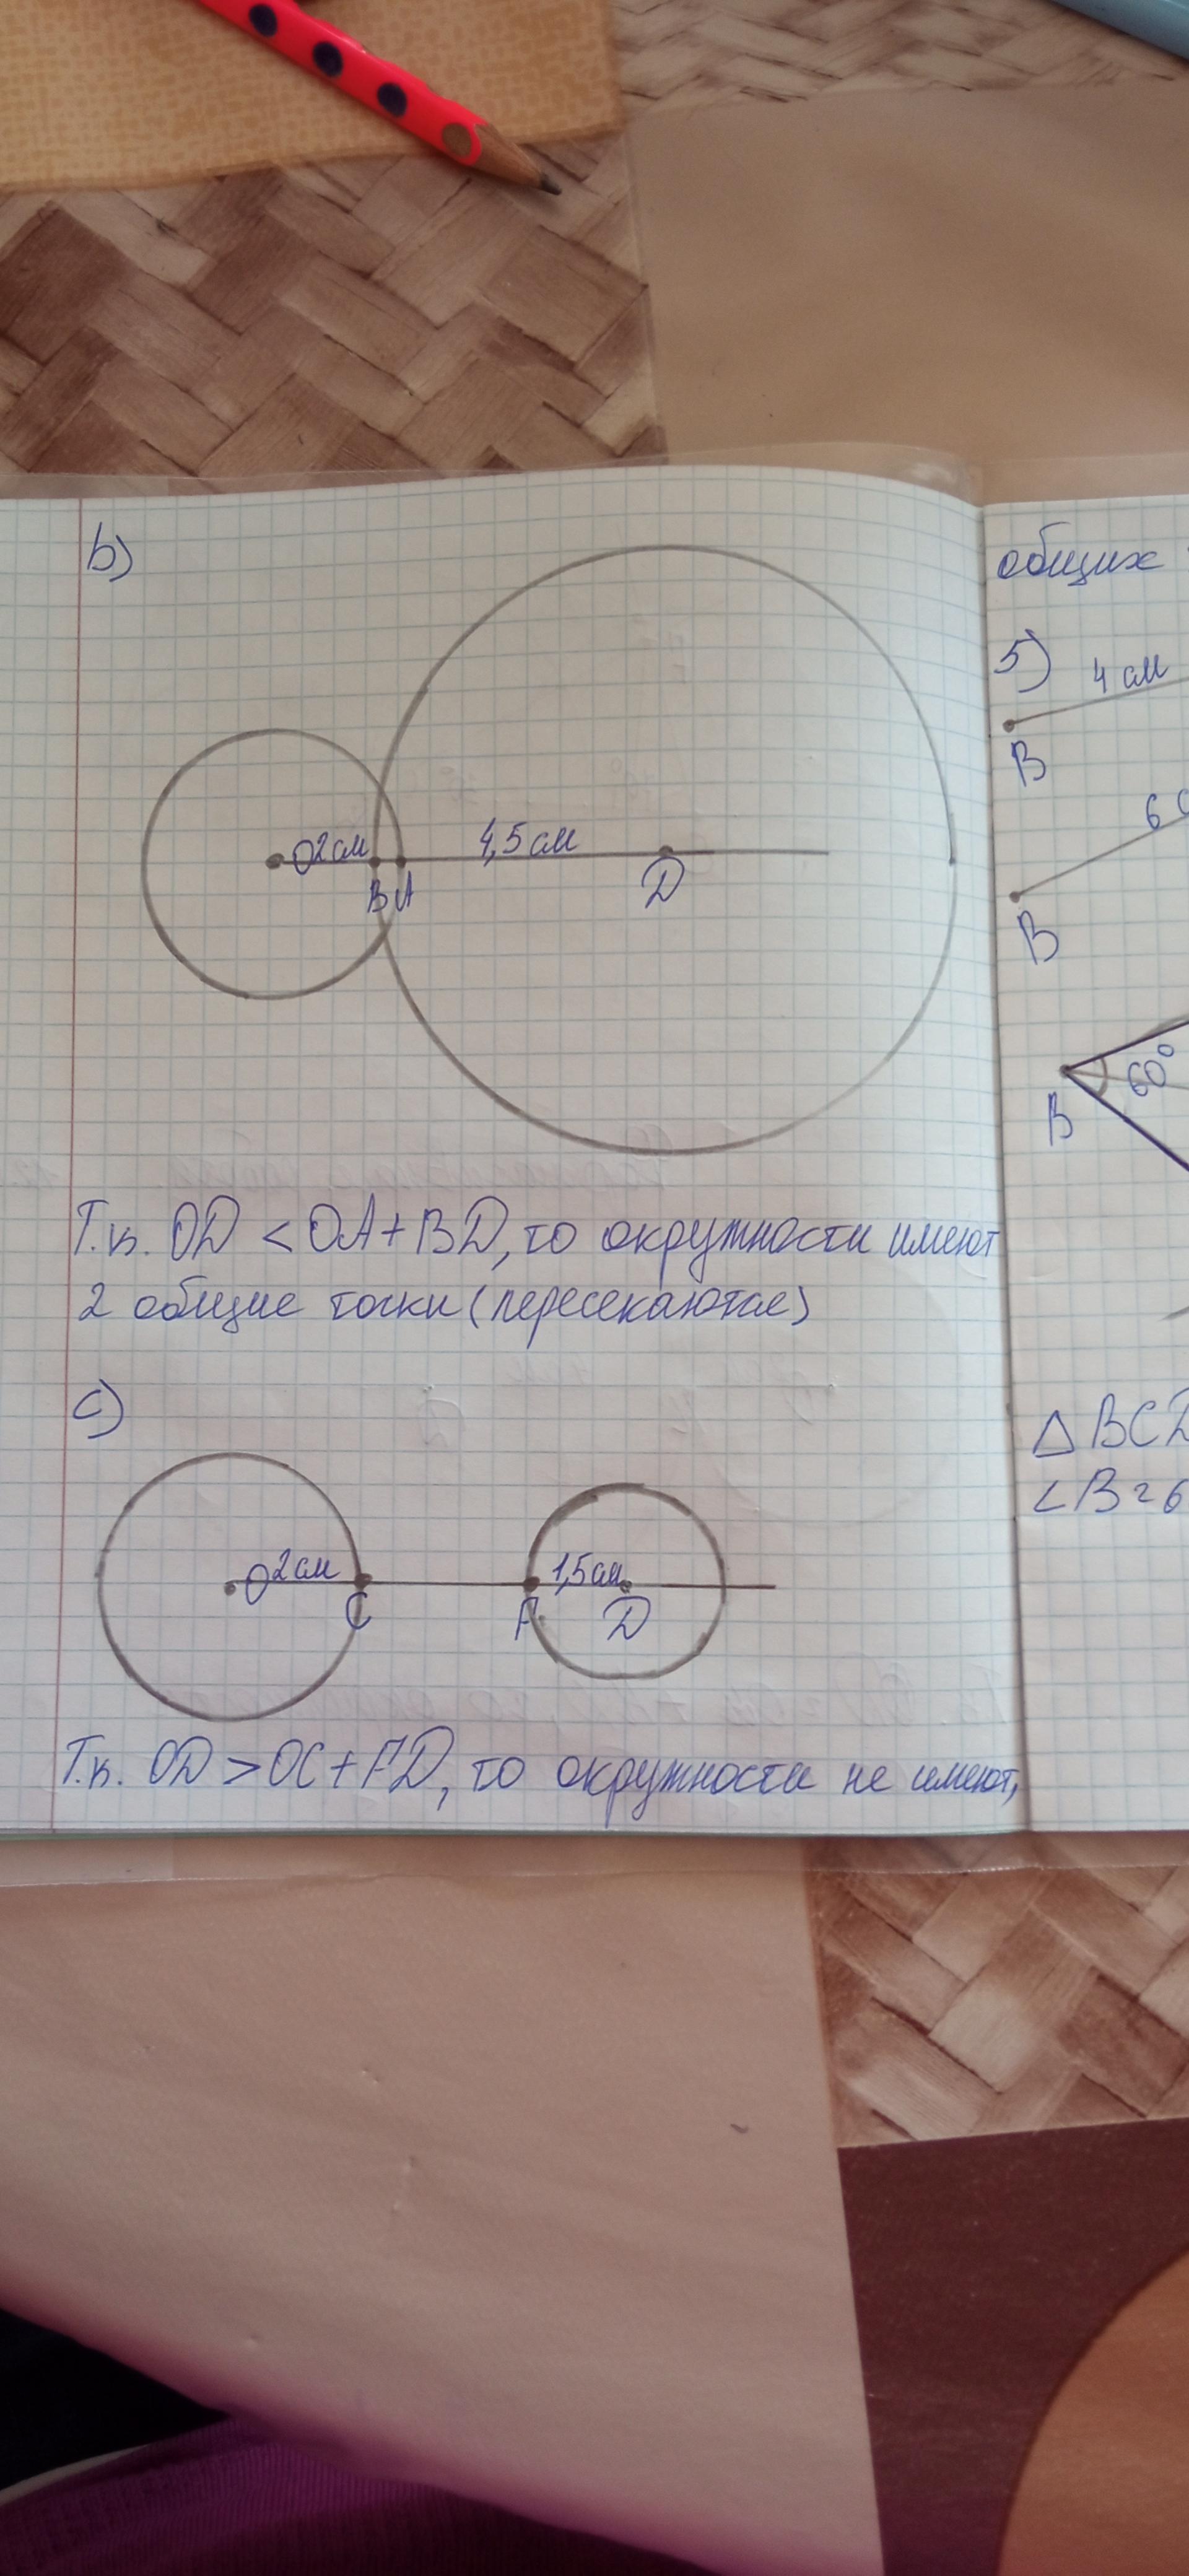 b)
O 2 см
4,5 см
B A
D
Т.к. OD < OA + BD, то окружности имеют
2 общие точки (пересекаются)
c)
O 2 см
1,5 см
C
F
D
Т.к. OD > OC + FD, то окружности не имеют,
общих
5)
4 см
B
6
B
60°
B
△ BCD
∠B = 6